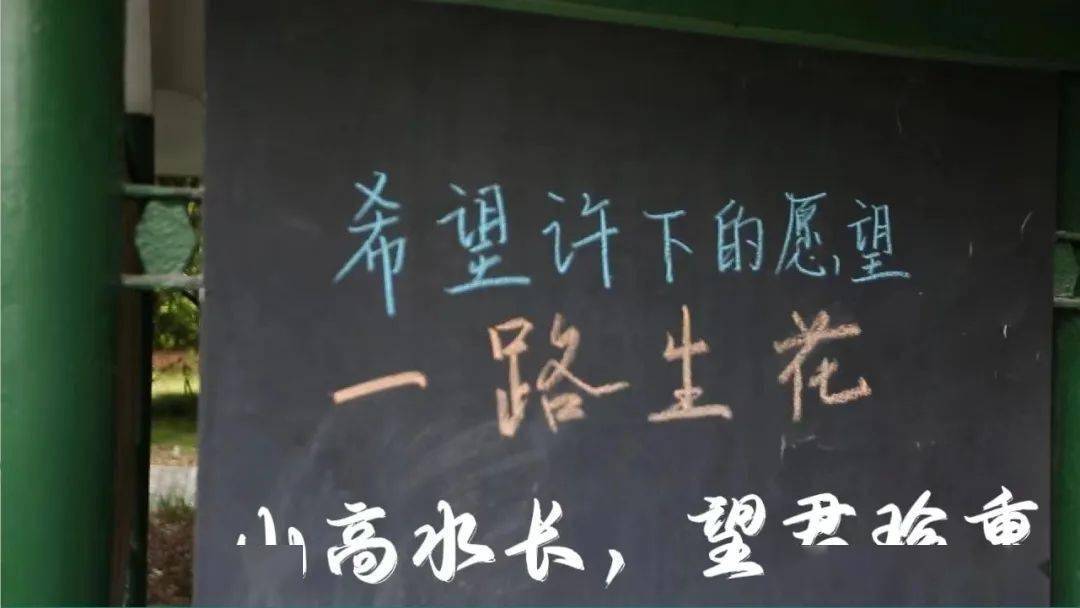 希望许下的愿望
一路生花
山高水长，望君珍重